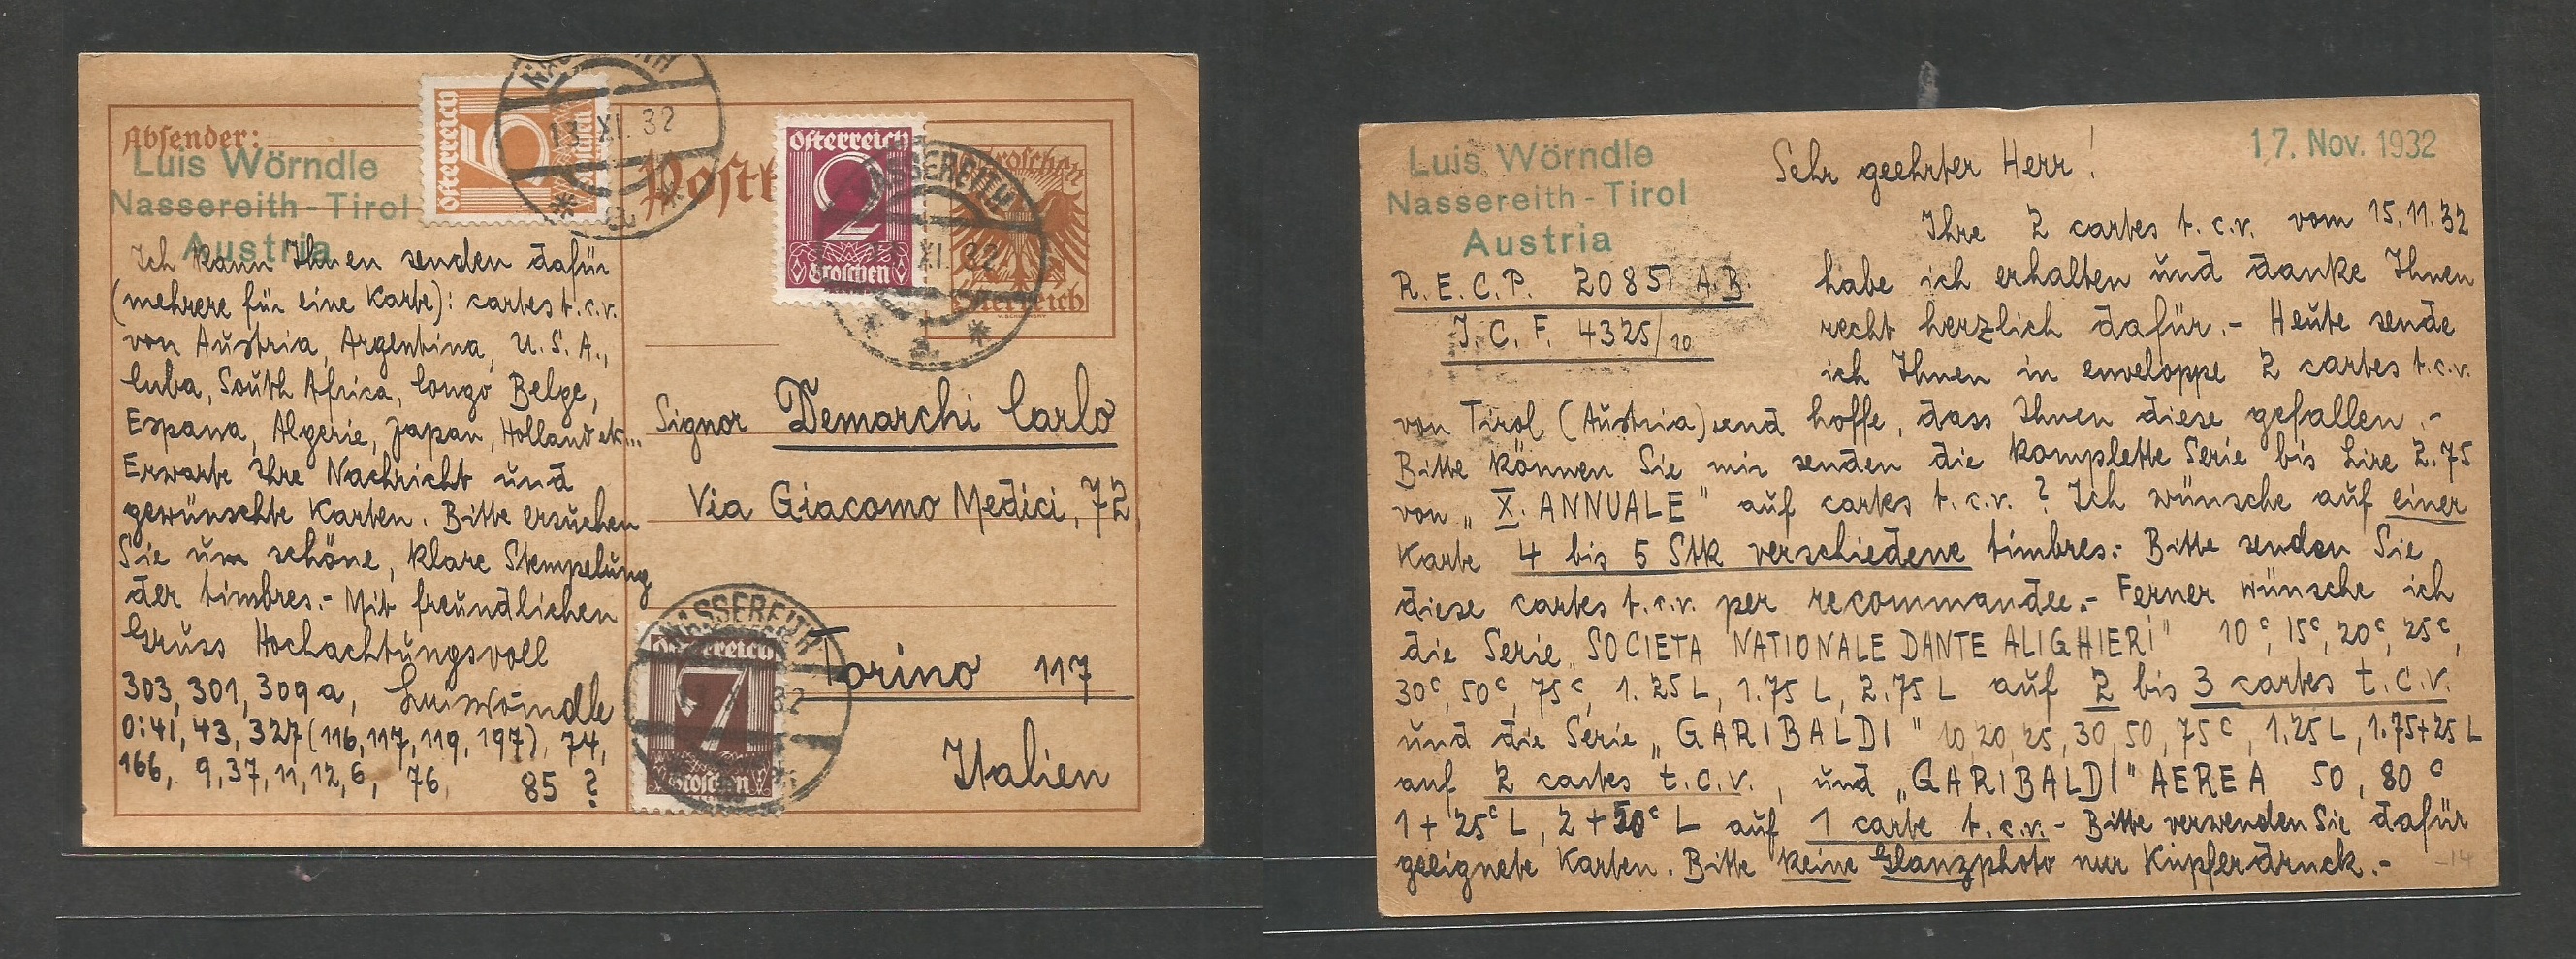 Absender:
Luis Wörndle
Nassereith-Tirol
Austria
Ich kann Ihnen senden dafür
(mehrere für eine Karte): cartes t.c.v.
von Austria, Argentina, U.S.A.,
Cuba, South Africa, Congo Belge,
Espana, Algerie, Japan, Holland etc...
Erwarte Ihre Nachricht und
gewünschte Karten. Bitte ersuchen
Sie um schöne, klare Stempelung
der timbres.- Mit freundlichen
Gruss Hochachtungsvoll
303, 301, 309a, Luis Wörndle
0:41, 43, 327 (116, 117, 119, 197), 74,
166, 9, 37, 11, 12, 6, 76, 85 ?
Österreich
5
Groschen
NASSEREITH
13.XI.32
Postk
Österreich
2
Groschen
NASSEREITH
XI.32
Groschen
Österreich
Signor Demarchi Carlo
Via Giacomo Medici, 72
Torino 117
Italien
NASSEREITH
32
Österreich
7
Groschen
Luis Wörndle
Nassereith-Tirol
Austria
17. Nov. 1932
R.E.C.P. 20851 A.B.
I.C.F. 4325/10
Sehr geehrter Herr!
Ihre 2 cartes t.c.v. vom 15.11.32
habe ich erhalten und danke Ihnen
recht herzlich dafür.- Heute sende
ich Ihnen in enveloppe 2 cartes t.c.v.
von Tirol (Austria) und hoffe, dass Ihnen diese gefallen.-
Bitte können Sie mir senden die komplette Serie bis Lire 2.75
von „X. ANNUALE" auf cartes t.c.v.? Ich wünsche auf einer
Karte 4 bis 5 Stk verschiedene timbres.- Bitte senden Sie
diese cartes t.c.v. per recommandee.- Ferner wünsche ich
die Serie „SOCIETA NATIONALE DANTE ALIGHIERI" 10c, 15c, 20c, 25c,
30c, 50c, 75c, 1.25L, 1.75L, 2.75L auf 2 bis 3 cartes t.c.v.
und die Serie „GARIBALDI" 10, 20, 25, 30, 50, 75c, 1.25L, 1.75+25L
auf 2 cartes t.c.v., und „GARIBALDI" AEREA 50, 80c
1+25c L, 2+50c L auf 1 carte t.c.v.- Bitte verwenden Sie dafür
geeignete Karten. Bitte keine Glanzphoto nur Kupferdruck.-
-14